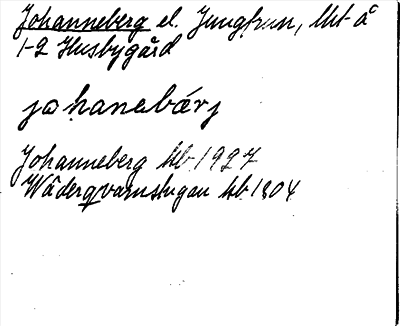 Johanneberg el. Jungfrun, lht å
1-2 Husbygård
johanebärj
Johanneberg hb 1927
Wäderqvarnstugan hb 1804